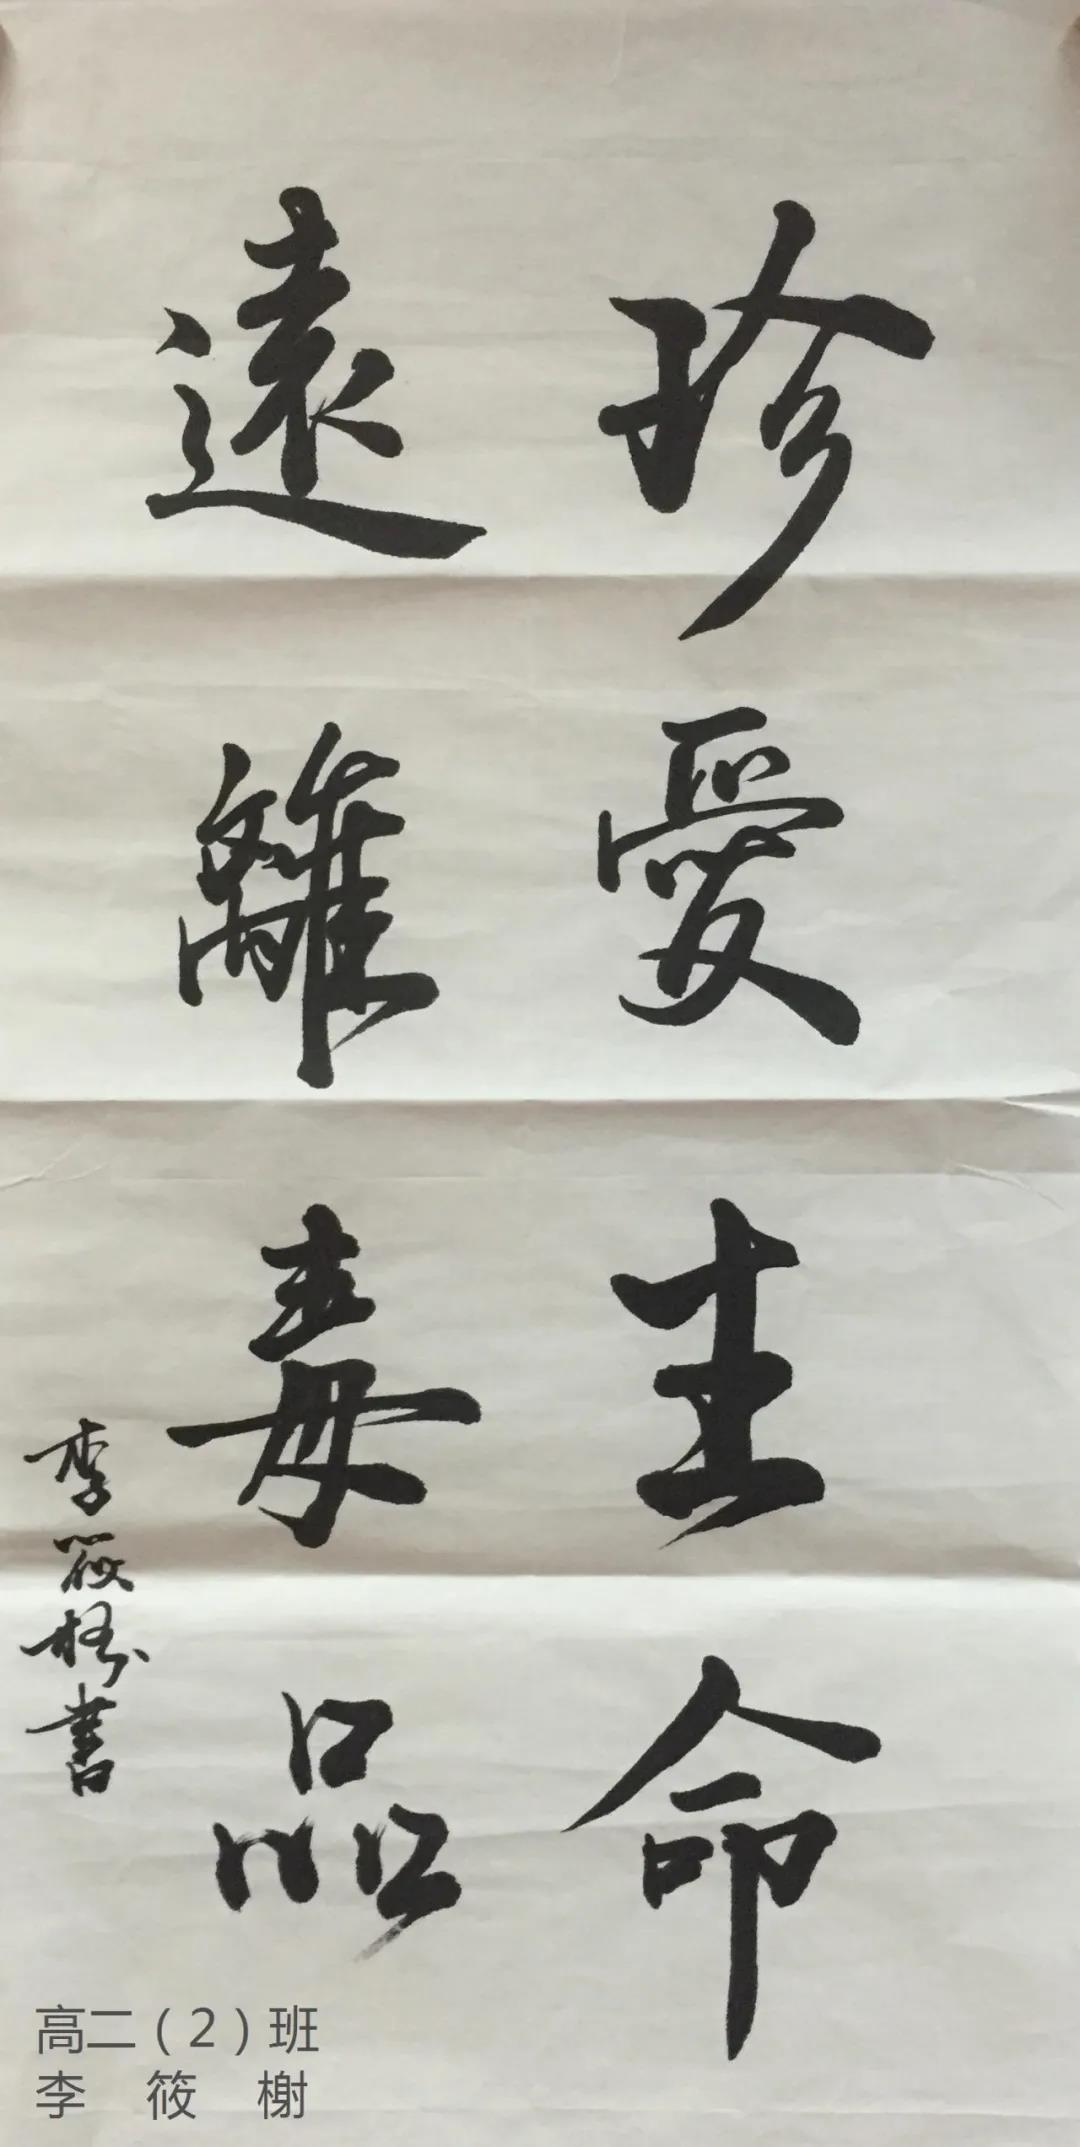 珍愛生命
遠離毒品
李筱榭書
高二（2）班
李筱榭